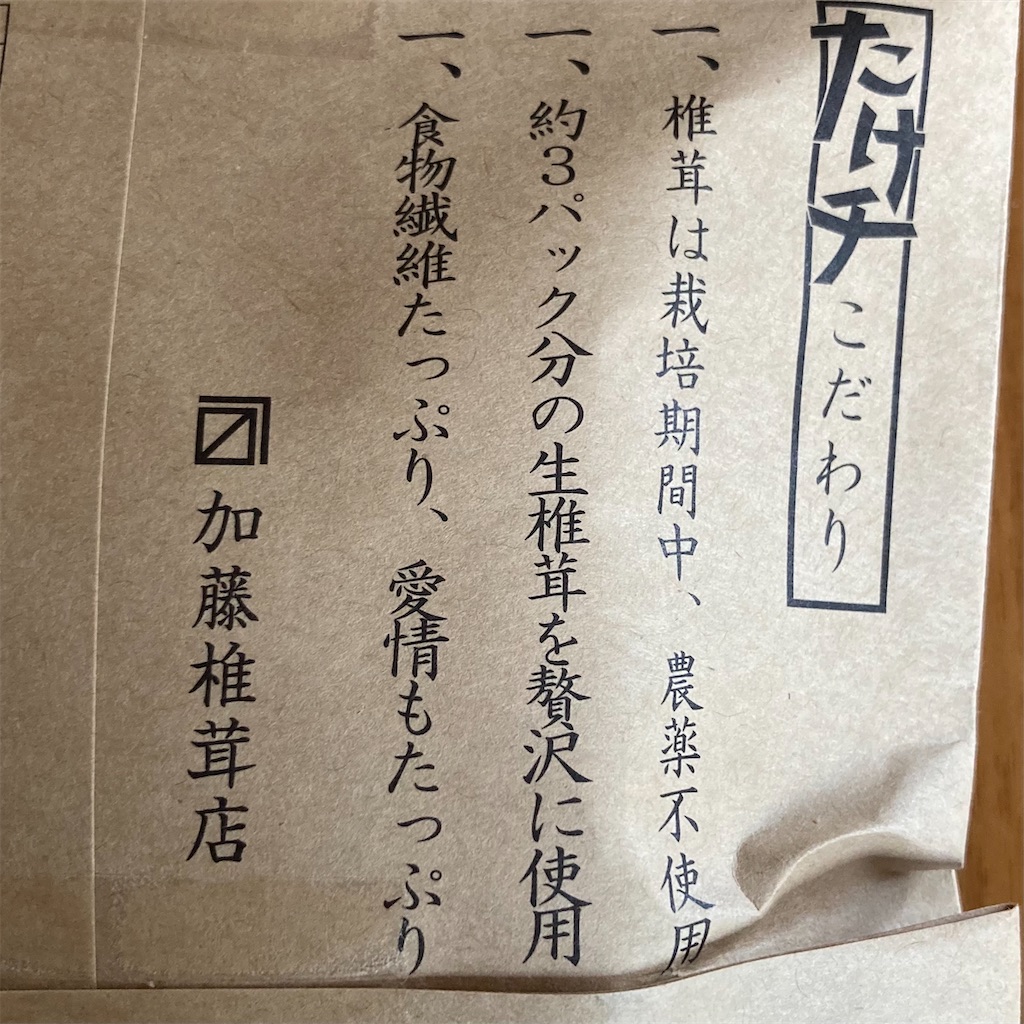 たけチこだわり
一、椎茸は栽培期間中、農薬不使用
一、約３パック分の生椎茸を贅沢に使用
一、食物繊維たっぷり、愛情もたっぷり
加藤椎茸店